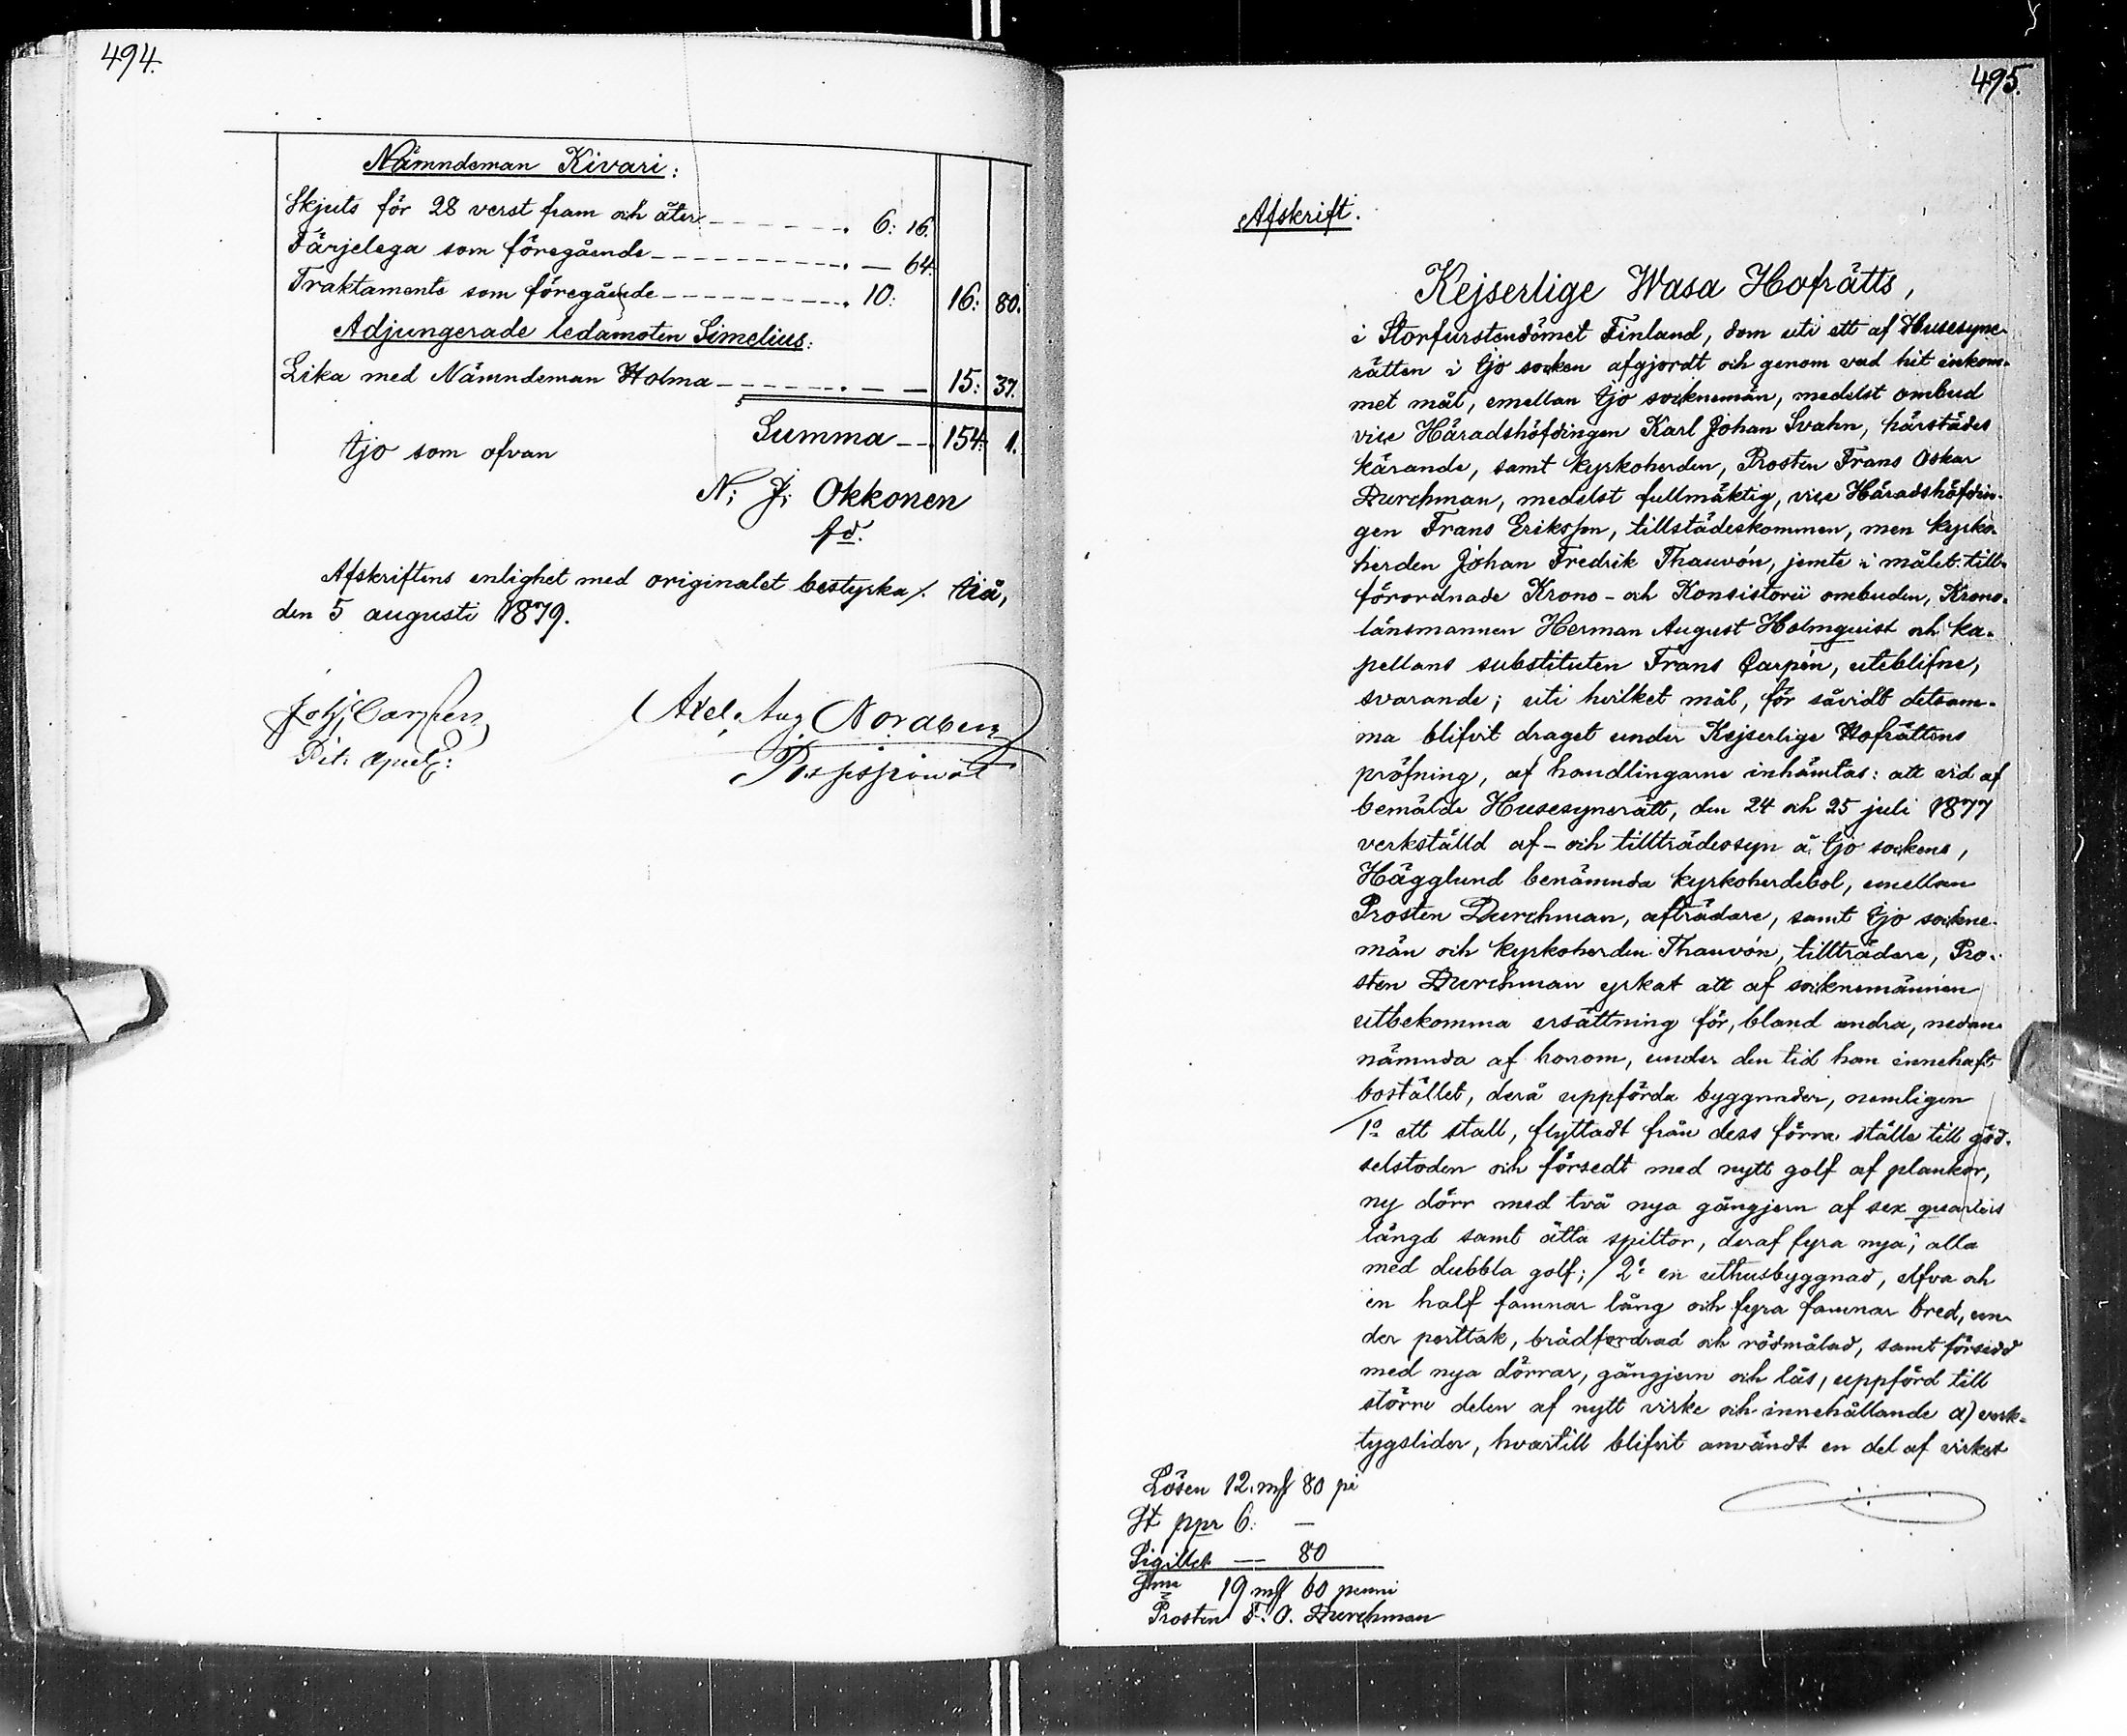 494.
Nämndeman Kivari:
Skjuts för 28 verst fram och åter - - - - - . 6: 16.
Färjelega som föregående - - - - - - . — 64.
Traktamente som föregående - - - - - - . 10: 16: 80.
Adjungerade ledamoten Simelius:
Lika med Nämndeman Holma - - - - - . — — 15: 37.
Summa - - . 154: 1.
Ijo som ofvan
N: J: Okkonen
fd.
Afskriftens enlighet med originalet bestyrka /. Iiå,
den 5 augusti 1879.
Joh: Carpen
Axel Aug Norden
495.
Afskrift.
Kejserlige Wasa Hofrätts,
i Storfurstendömet Finland, dom uti ett af Husesyne-
rätten i Ijo socken afgjordt och genom vad hit inkom-
met mål, emellan Ijo socknemän, medelst ombud
vice Häradshöfdingen Karl Johan Svahn, härstädes
kärande, samt kyrkoherden, Prosten Frans Oskar
Durchman, medelst fullmäktig, vice Häradshöfdin-
gen Frans Eriksson, tillstädeskommen, men kyrko-
herden Johan Fredrik Thauvón, jemte i målet till-
förordnade Krono- och Konsistorii ombuden, Krono-
länsmannen Herman August Holmquist och ka-
pellans substituten Frans Carpén, uteblifne,
svarande; uti hvilket mål, för såvidt detsam-
ma blifvit draget under Kejserlige Hofrättens
pröfning, af handlingarne inhämtas: att vid af
bemälde Husesynerätt, den 24 och 25 juli 1877
verkställd af- och tillträdessyn å Ijo sockens,
Hägglund benämnda kyrkoherdebol, emellan
Prosten Durchman, afträdare, samt Ijo sockne-
män och kyrkoherden Thauvón, tillträdare, Pro-
sten Durchman yrkat att af socknemännen
utbekomma ersättning för, bland andra, nedan-
nämnda af honom, under den tid han innehaft
bostället, derå uppförda byggnader, nemligen
1º ett stall, flyttadt från dess förra ställe till göd-
selstaden och försedt med nytt golf af plankor,
ny dörr med två nya gångjern af sex quarters
längd samt åtta spiltor, deraf fyra nya, alla
med dubbla golf; / 2º en uthusbyggnad, elfva och
en half famnar lång och fyra famnar bred, un-
der perttak, brädfordrad och rödmålad, samt försedd
med nya dörrar, gångjern och lås, uppförd till
större delen af nytt virke och innehållande a) verk-
tygslider, hvartill blifvit användt en del af virket
Lösen 12. mk 80 pi
St ppr 6: —
Sigillet — 80
Sma 19 mk 60 penni
Prosten F. O. Durchman